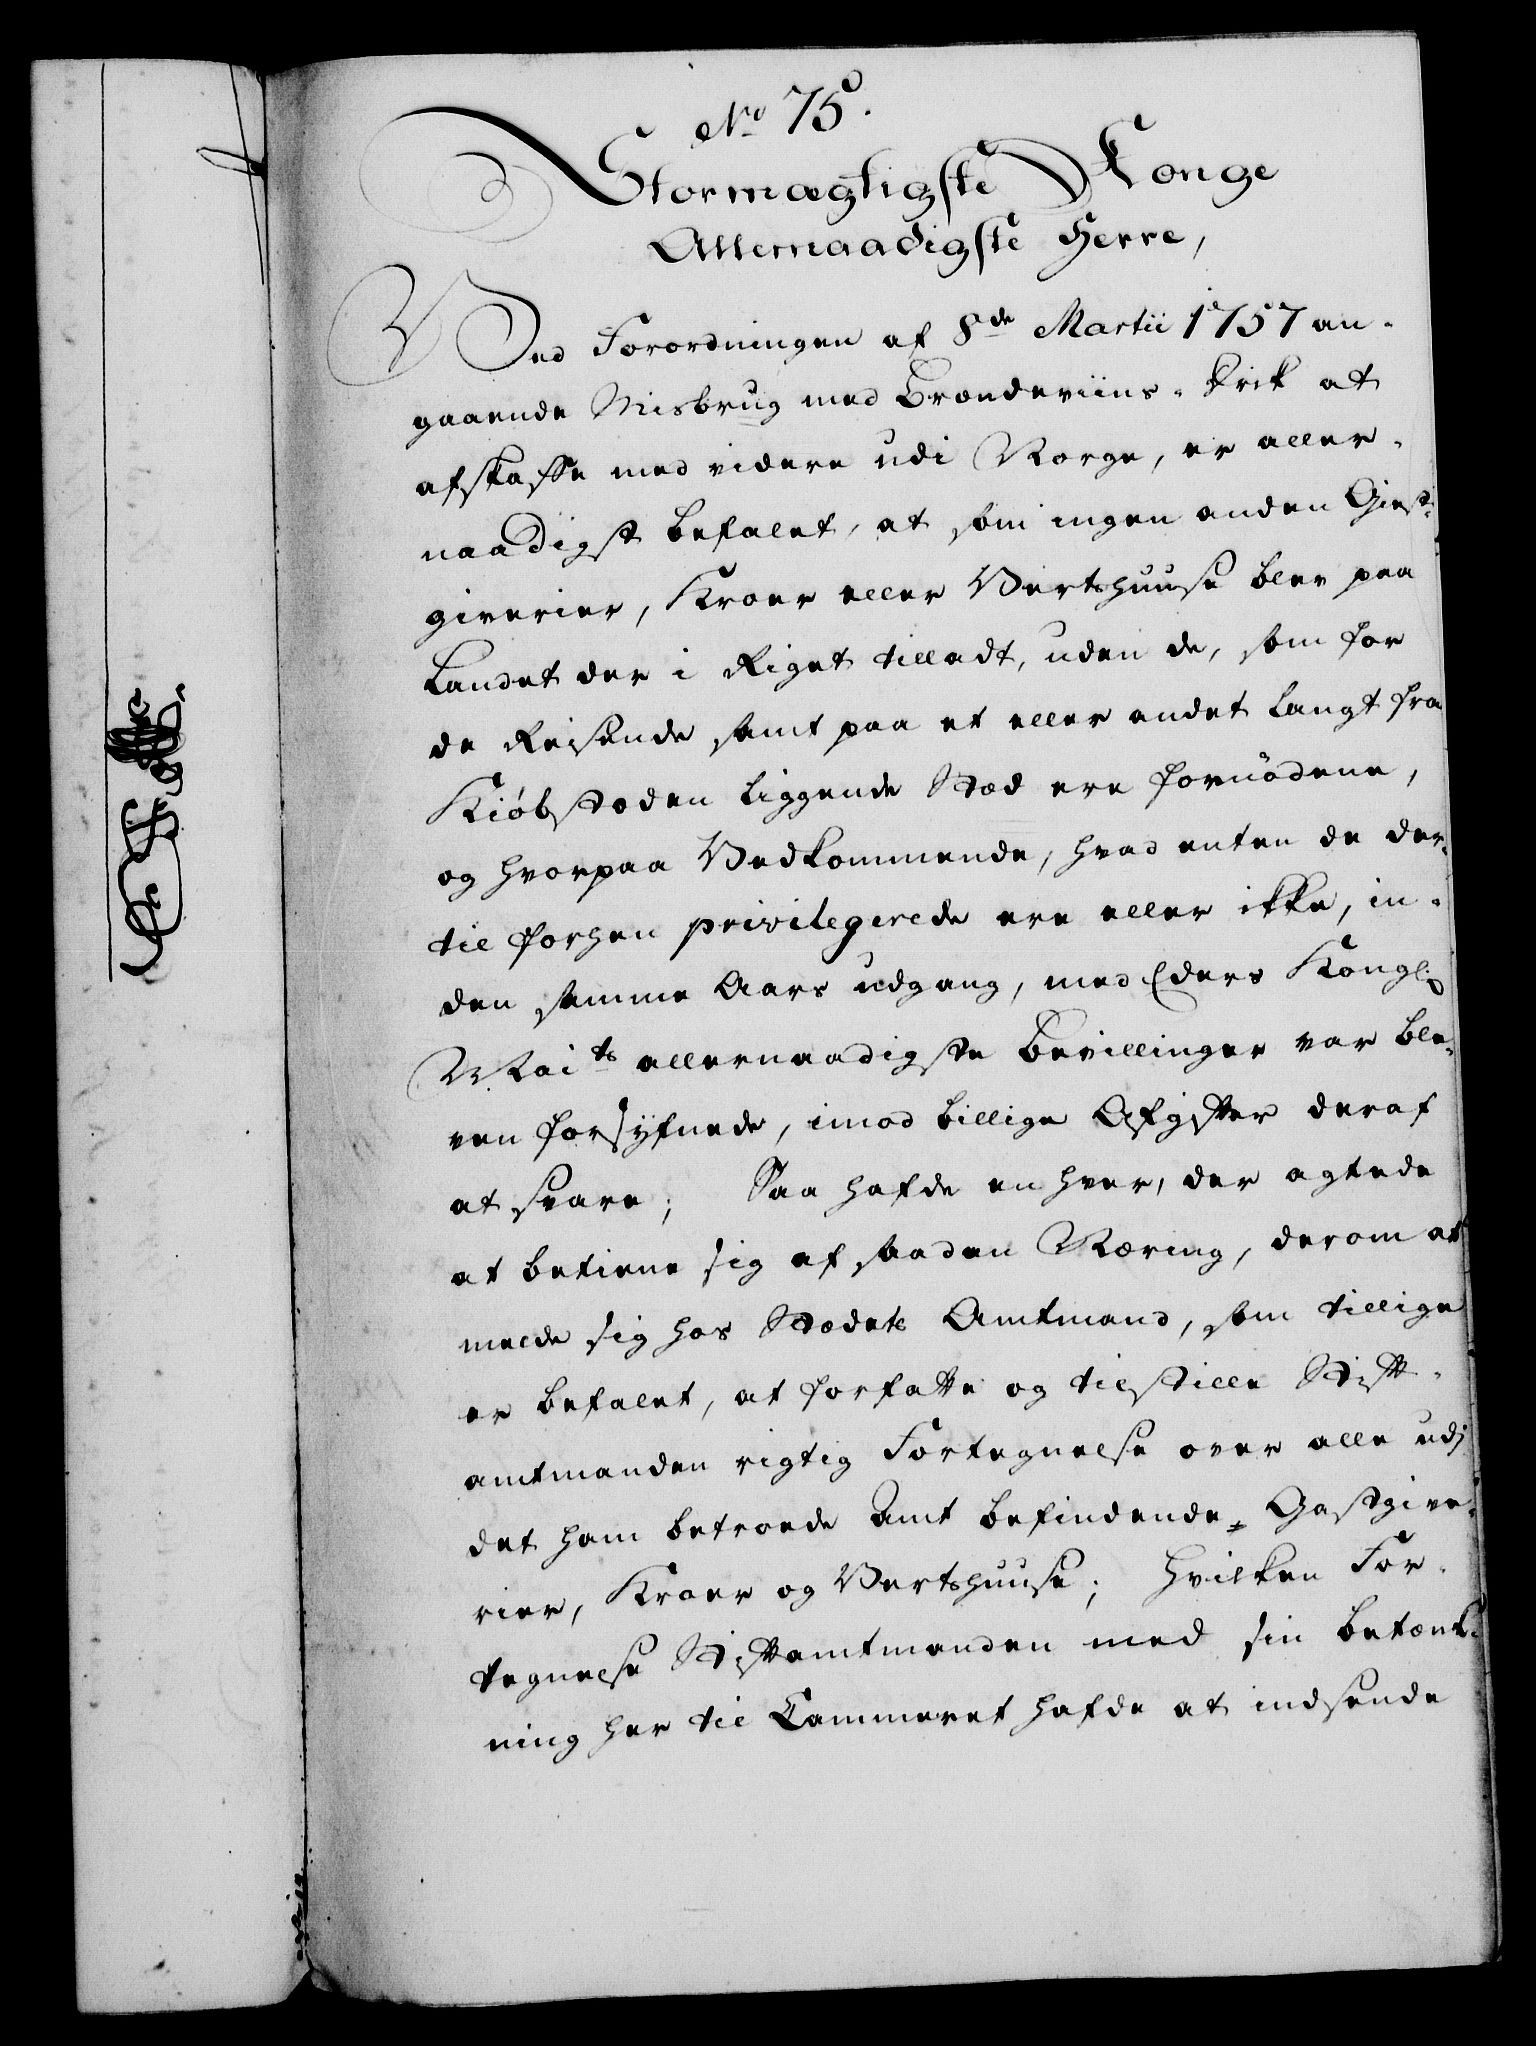 No 75.
Stormægtigste Konge
Allernaadigste Herre,
Ved Forordningen af 8de Martii 1757 an-
gaaende Misbrug med Brændeviins-Drik at
afskaffe med videre udi Norge, er aller-
naadigst befalet, at som ingen anden Giest-
giverier, Kroer eller Vertshuuse blev paa
Landet der i Riget tilladt, uden de, som for
de Reisende samt paa et eller andet langt fra
Kiøbstæden liggende Stæd ere fornødene,
og hvorpaa Vedkommende, hvad enten de der-
til forhen privilegerede ere eller ikke, in-
den samme Aars udgang, med Eders Kongl:
Maits allernaadigste Bevillinger var ble-
ven forsÿfnede, imod billige Afgifter deraf
at svare; Saa hafde en hver, der agtede
at betiene sig af saaden Næring, derom at
melde sig hos Stædets Amtmand, som tillige
er befalet, at forfatte og tilstille Stift-
amtmanden rigtig Fortegnelse over alle udj
det ham betroede Amt befindende Gastgive-
rier, Kroer og Vertshuuse; hvilken For-
tegnelse Stiftamtmanden med sin betænk-
ning her til Cammeret hafde at indsende